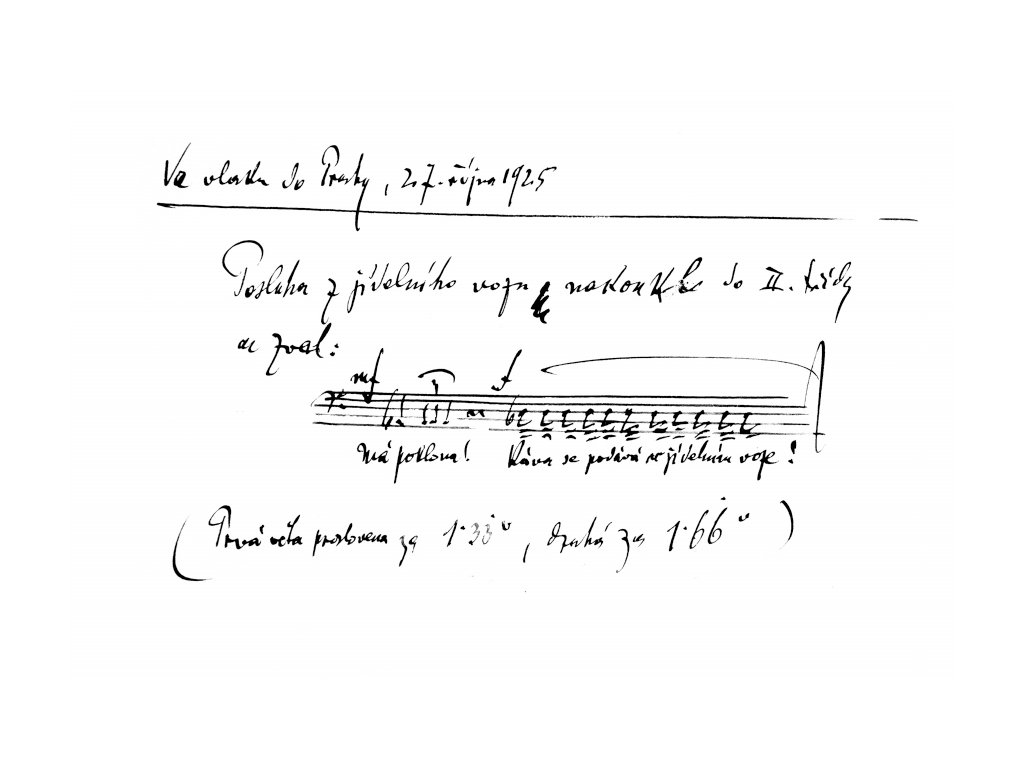 Ve vlaku do Prahy, 27. října 1925
Posluha z jídelního vozu nakoukl do II. třídy
a zval:
mf f
Má poklona! Káva se podává v jídelním voze!
(Prvá věta proslovena za 1·33", druhá za 1·66")